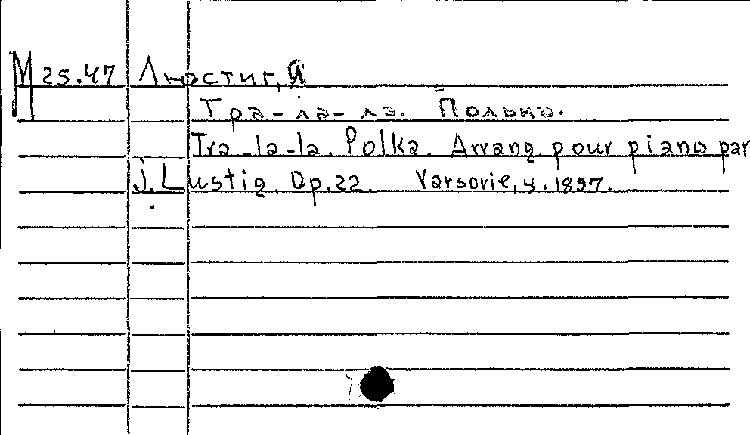 М 25.47 Люстиг, Я
Тра-ла-ла. Полька.
Tra-la-la. Polka. Arrang pour piano par
J. Lustig. Op. 22. Varsovie, y. 1897.